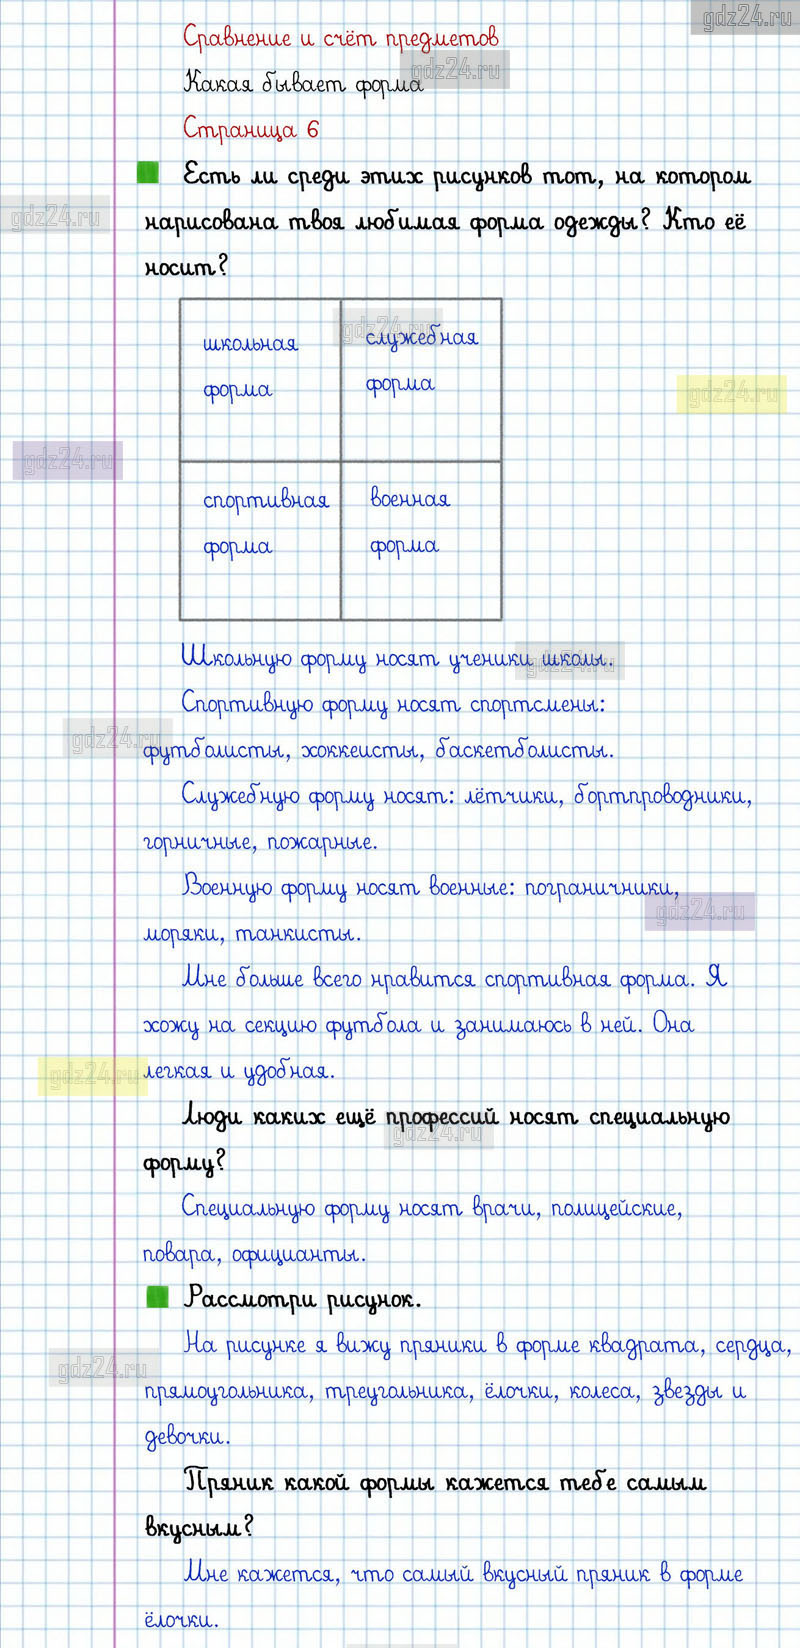 gdz24.ru
Сравнение и счёт предметов
gdz24.ru
Какая бывает форма
Страница 6
Есть ли среди этих рисунков тот, на котором
gdz24.ru
нарисована твоя любимая форма одежды? Кто её
носит?
gdz24.ru
школьная
форма
служебная
форма
gdz24.ru
gdz24.ru
спортивная
форма
военная
форма
Школьную форму носят ученики школы.
gdz24.ru
Спортивную форму носят спортсмены:
gdz24.ru
футболисты, хоккеисты, баскетболисты.
Служебную форму носят: лётчики, бортпроводники,
горничные, пожарные.
Военную форму носят военные: пограничники,
gdz24.ru
моряки, танкисты.
Мне больше всего нравится спортивная форма. Я
хожу на секцию футбола и занимаюсь в ней. Она
gdz24.ru
легкая и удобная.
Люди каких ещё профессий носят специальную
gdz24.ru
форму?
Специальную форму носят врачи, полицейские,
повара, официанты.
Рассмотри рисунок.
На рисунке я вижу пряники в форме квадрата, сердца,
gdz24.ru
прямоугольника, треугольника, ёлочки, колеса, звезды и
девочки.
Пряник какой формы кажется тебе самым
вкусным?
Мне кажется, что самый вкусный пряник в форме
ёлочки.